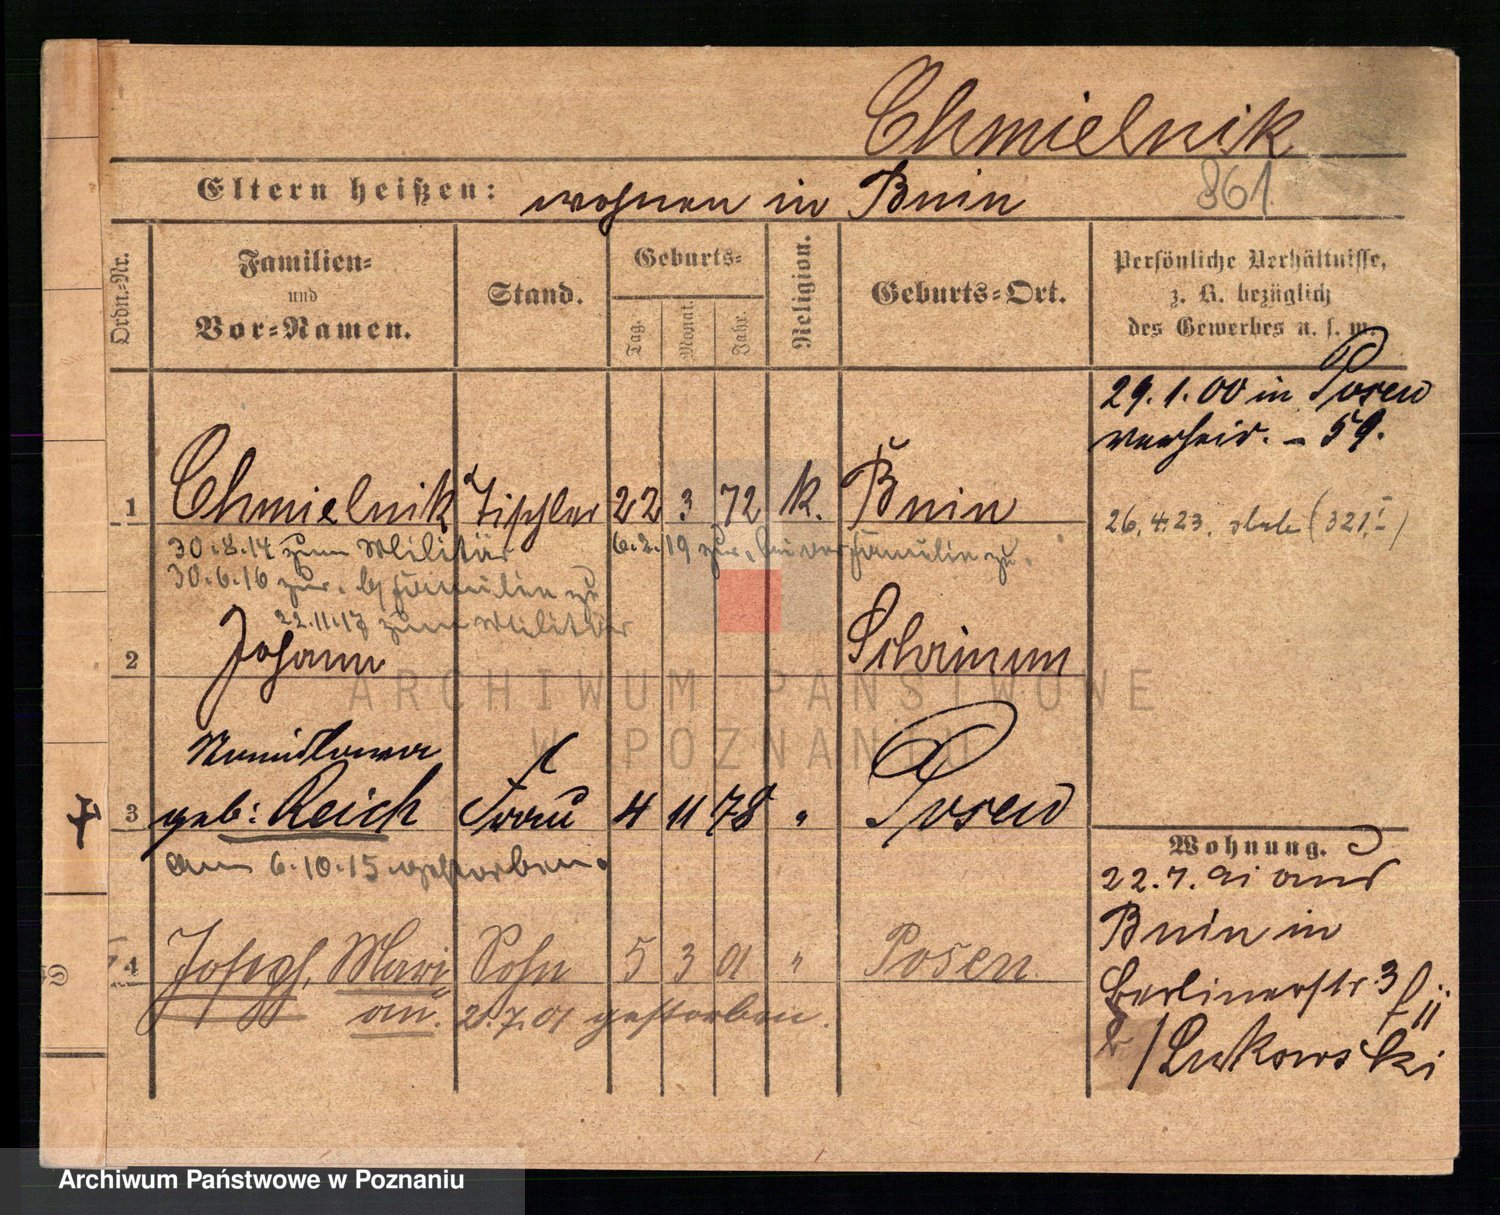 Chmielnik
Eltern heißen: wohnen in Bnin 861
Ordn.-Nr. Familien- und Vor-Namen. Stand. Geburts- Tag. Monat. Jahr. Religion. Geburts-Ort. Persönliche Verhältnisse, z. B. bezüglich des Gewerbes u. s. w.
29.1.00 in Posen
verheir. – 59.
1 Chmielnik Tischler 22 3 72 k. Bnin
26.4.23. (321 I)
30.8.14 zum Militär 6.2.19 zur. bei der Familie zu.
30.6.16 zur. Familie zu
22.11.17 zum Militär
2 Johann Schrimm
3 geb: Reich Frau 4 11 78 " Posen
am 6.10.15 gestorben.
4 Joseph, Mari Sohn 5 3 01 " Posen
an. 2.7.01 gestorben.
Wohnung.
22.7.91 aus
Bnin in
Berlinerstr. 3
b/Lukowski
ARCHIWUM PAŃSTWOWE
W POZNANIU
Archiwum Państwowe w Poznaniu